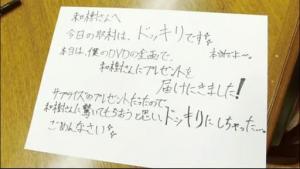 和樹さんへ
今日の取材は、ドッキリです。
本当だよー。
本日は、僕のDVDの企画で、
和樹さんにプレゼントを
届けにきました！
サプライズのプレゼントだったので、
和樹さんに驚いてもらおうと思い、ドッキリにしちゃった…。
ごめんなさい。